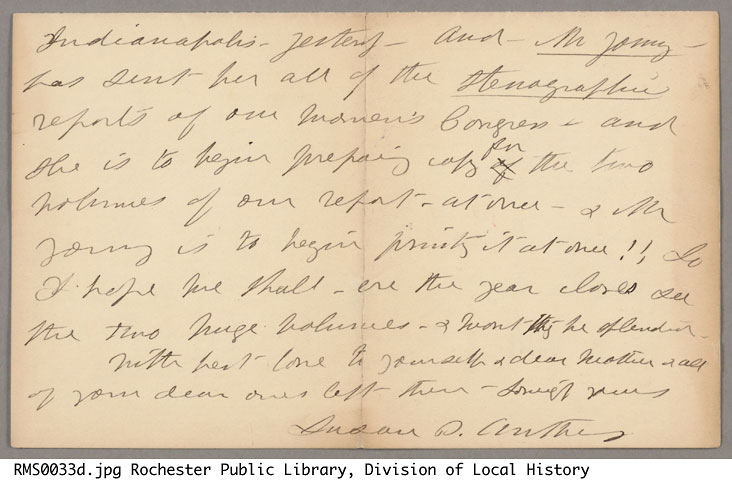 Indianapolis - yesterdy - and - Mr Young -
has sent her all of the stenographic
reports of our Women's Congress - and
she is to begin preparing copy for the two
volumes of our report - at once - & Mr
Young is to begin printing it at once!! So
I hope we shall - ere the year closes see
the two huge volumes - & wont they be splendid -
With best love to yourself & dear Mother & all
of your dear ones left - then - yours
Susan B. Anthony
RMS0033d.jpg Rochester Public Library, Division of Local History